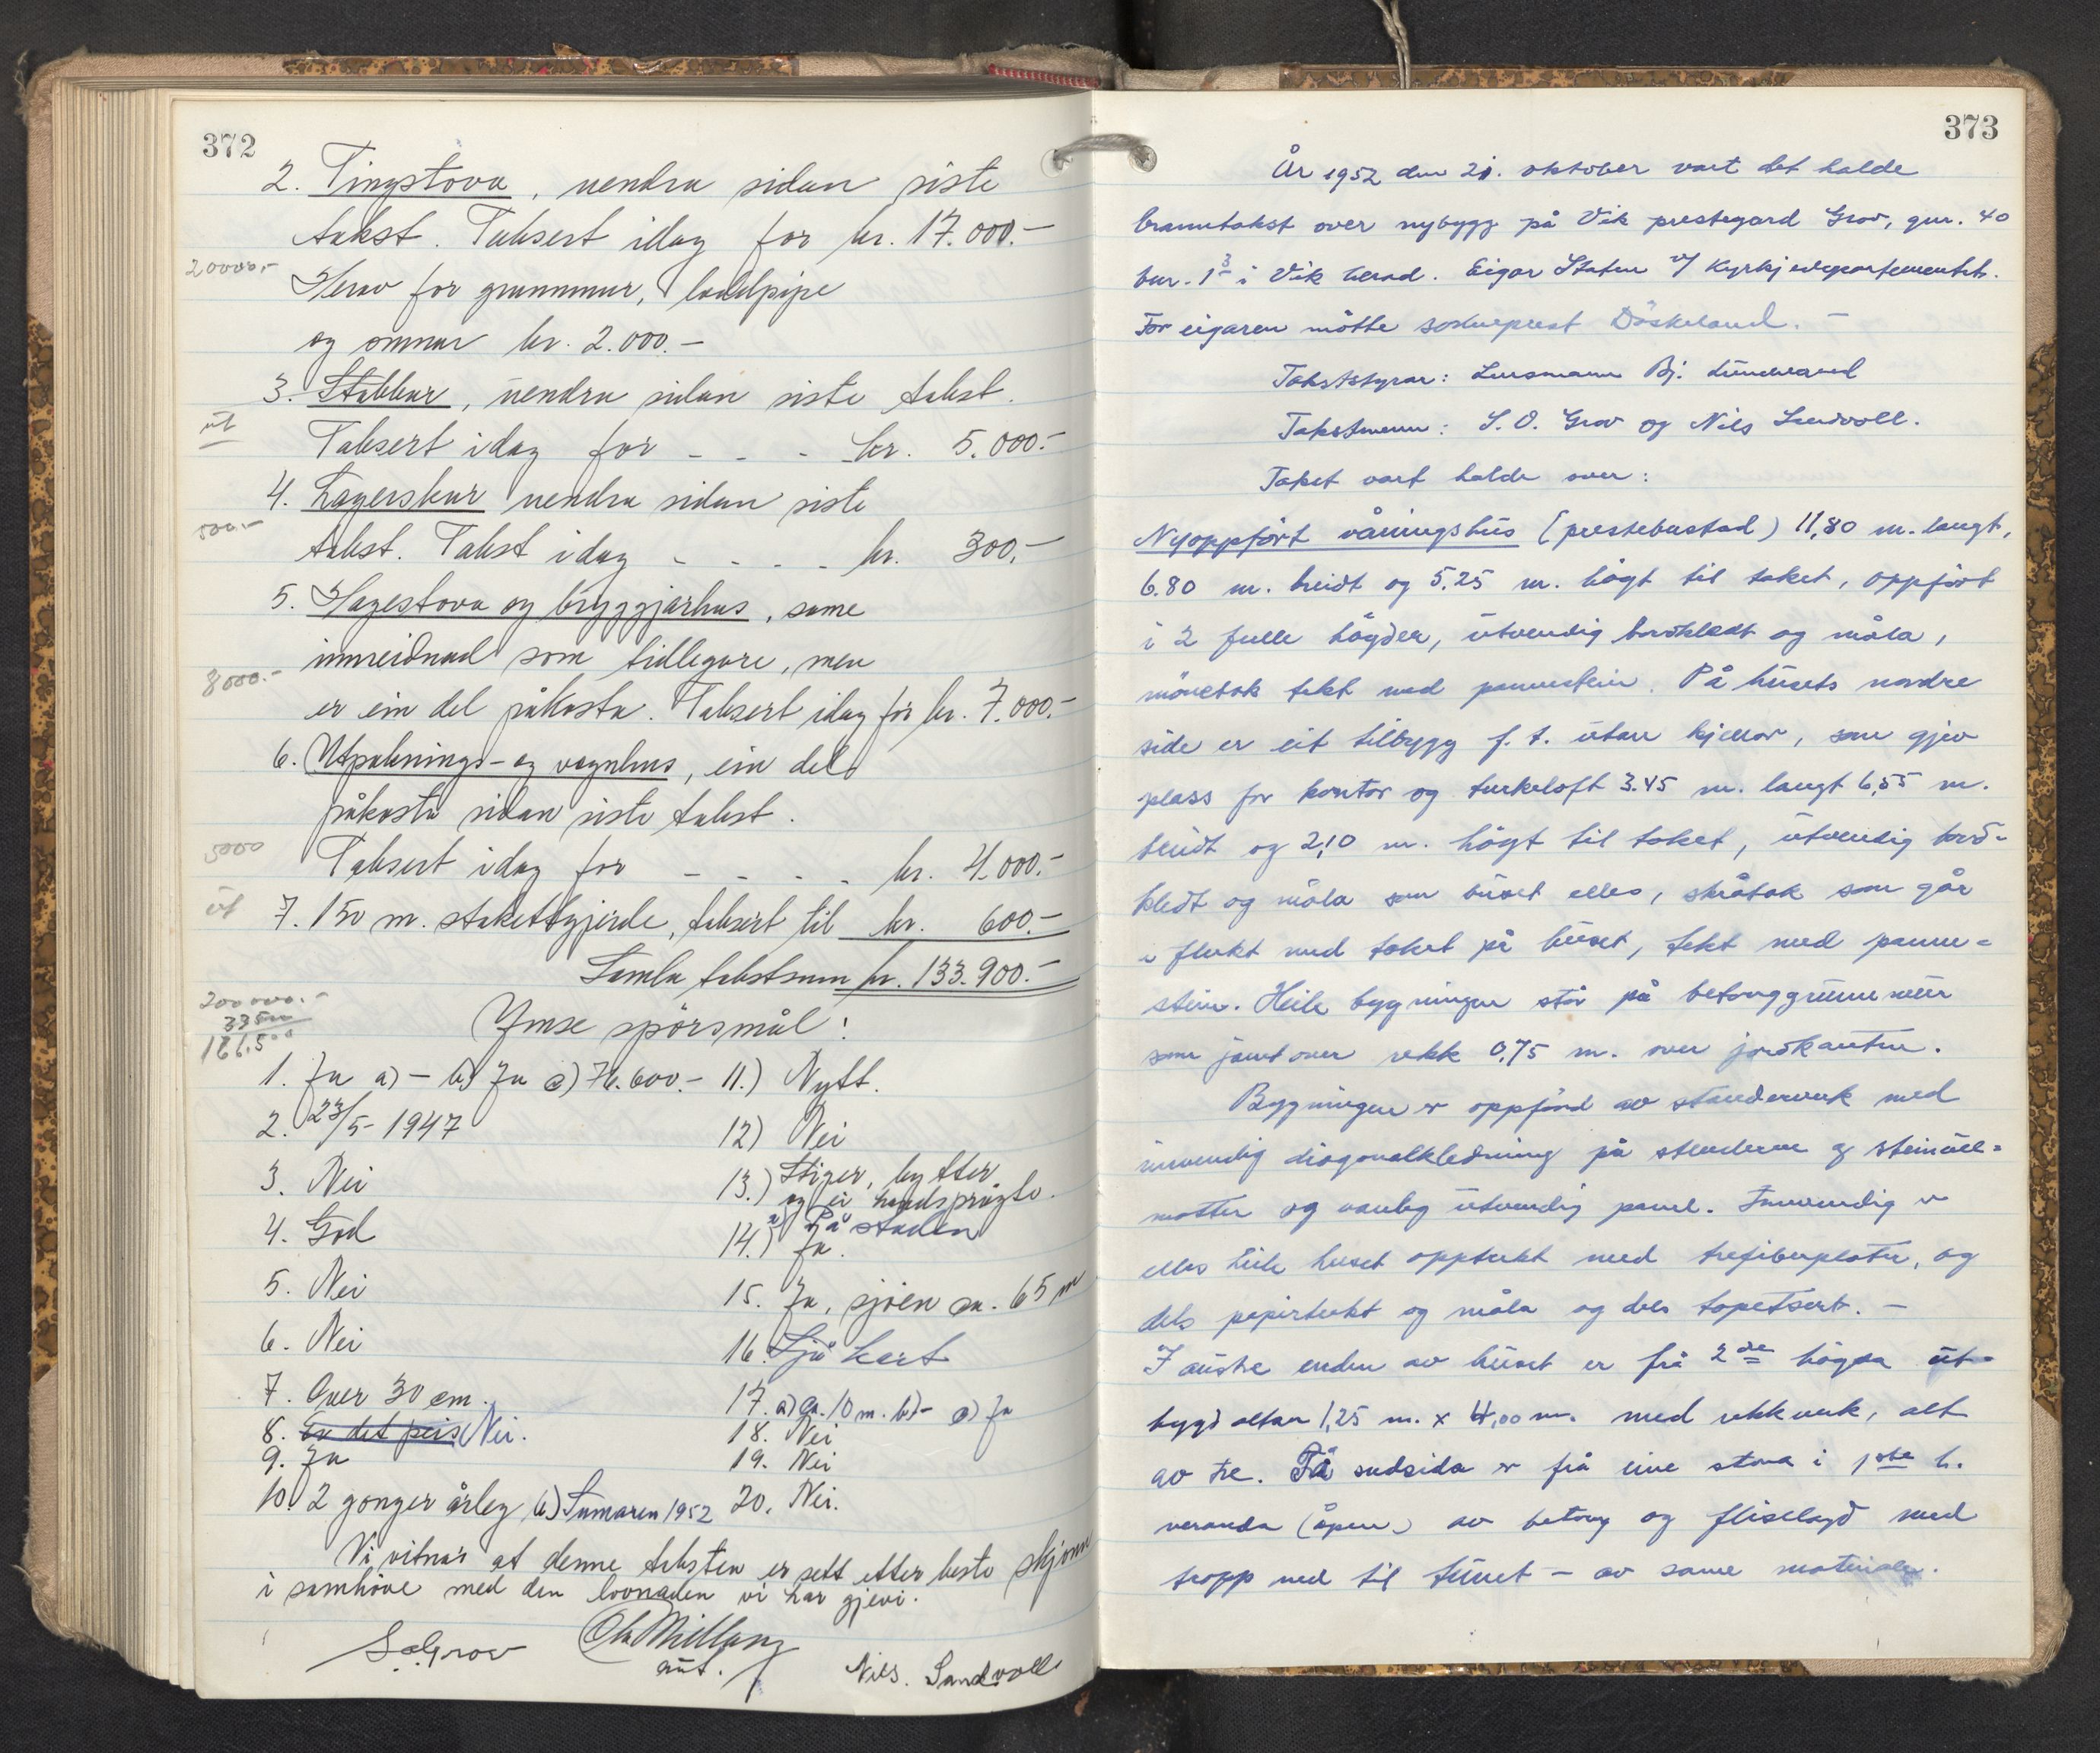 372
2. Tingstova, uendra sidan siste
takst. Taksert idag for kr. 17.000.-
20000.-
Herav for grunnmur, loddpipe
og omnar kr. 2.000.-
3. Stabbur, uendra sidan siste takst.
ut
Taksert idag for - - - kr. 5.000.-
4. Lagerskur uendra sidan siste
500.-
takst. Takst idag - - - - kr. 300.-
5. Hagestova og bryggjarhus, same
innreidnad som tidlegare, men
8000.-
er ein del påkosta. Taksert idag for kr. 7.000.-
6. Utpaknings- og vognhus, ein del
påkosta sidan siste takst.
5000
Taksert idag for - - - - kr. 4.000.-
ut
7. 150 m. stakettgjerde, taksert til kr. 600.-
Samla takstsum kr. 133.900.-
200000.-
33500
166.500
Ymse spörsmål:
1. Ja a) - b) Ja c) 76.600.-
2. 23/5- 1947
3. Nei
4. God
5. Nei
6. Nei
7. Over 30 cm.
8. Er det peis Nei.
9. Ja
10. 2 gonger årleg b) Sumaren 1952
11.) Nytt.
12) Nei
13.) Stiger, bytter
og ei handspröyte.
14.) a) På staden
Ja.
15. Ja, sjöen ca. 65 m
16. Sjå kart
17. a) ca. 10 m. b) - c) Ja
18. Nei
19. Nei
20. Nei.
Vi vitnar at denne taksten er sett etter beste skjönn
i samhöve med den lovnaden vi har gjevi.
S. O. Grov
Ola Millang
aut.
Nils. Sandvoll
373
År 1952 den 21. oktober vart det halde
branntakst over nybygg på Vik prestegard Grov, gnr. 40
bnr. 1 3 i Vik herad. Eigar Staten v/ Kyrkjedepartementet.
For eigaren mötte sokneprest Döskeland. -
Takststyrar: Lensmann Bj.
Takstmenn: S. O. Grov og Nils Sandvoll.
Taket vart halde over:
Nyoppfört våningshus (prestebustad) 11,80 m. langt,
6.80 m. breidt og 5.25 m. högt til taket, oppfört
i 2 fulle högder, utvendig bordkledt og måla,
mönetak tekt med pannestein. På husets nordre
side er eit tilbygg f. t. utan kjellar, som gjev
plass for kontor og turkeloft 3.45 m. langt 6,55 m.
breidt og 2,10 m. högt til taket, utvendig bord-
kledt og måla som huset elles, skråtak som går
i flukt med taket på huset, tekt med panne-
stein. Heile bygningen står på betonggrunnmur
som jamt over rekk 0,75 m. over jordkanten.
Bygningen er oppförd av stenderverk med
innvendig diagonalkledning på stenderne og steinull-
matter og vanleg utvendig panel. Innvendig er
elles heile huset opptekt med trefiberplater, og
dels papirtekt og måla og dels tapetsert. -
I austre enden av huset er frå 2 dre högda ut-
bygd altan 1,25 m. x 4,00 m. med rekkverk, alt
av tre. På sudsida er frå eine stova i 1ste h.
veranda (åpen) av betong og fliselagd med
tropp ned til tunet - av same materiale.